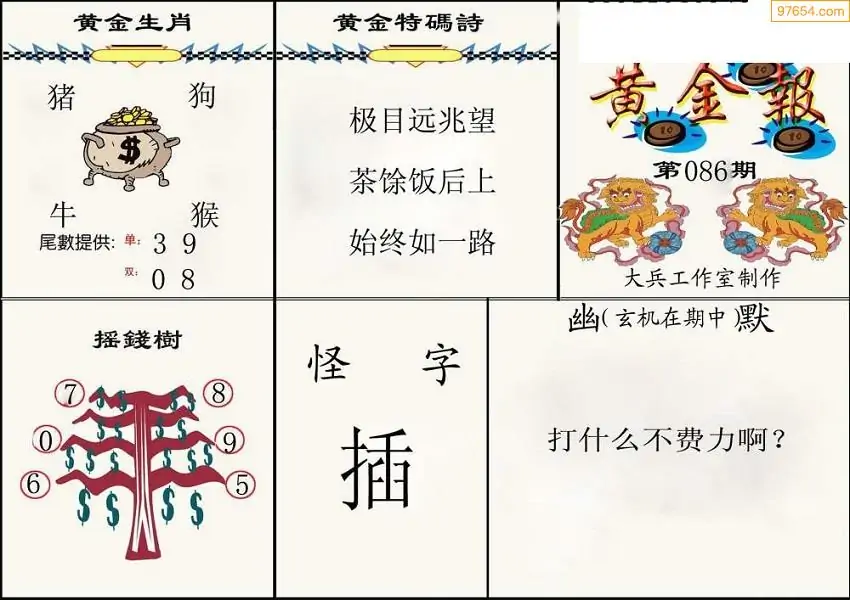 97654.com
黄金生肖
猪 狗
$
牛 猴
尾數提供: 单: 3 9
双: 0 8
黄金特碼詩
极目远兆望
茶馀饭后上
始终如一路
黄金報
10
10
10
第086期
大兵工作室制作
摇錢樹
7 8
$ $ $ $
$ $ $ $
0 9
$ $ $ $
6 5
$ $ $ $
怪 字
插
幽(玄机在期中)默
打什么不费力啊?